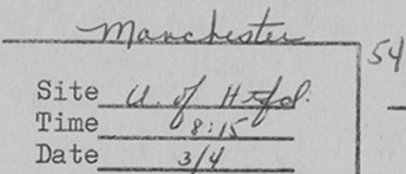 Manchester
54
Site U. of Htfd.
Time 8:15
Date 3/4